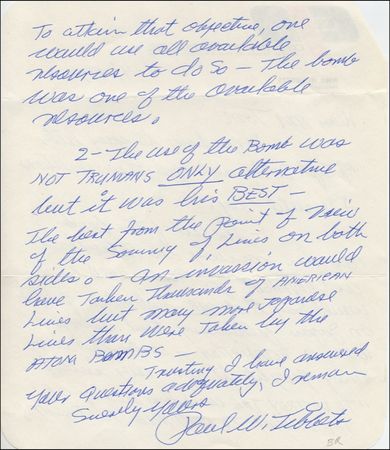 To attain that objective, one
would use all available
resources to do so — The bomb
was one of the available
resources.
2 - The use of the Bomb was
NOT TRUMANS ONLY alternative
but it was his BEST —
The best from the point of View
of the Saving of Lives on both
sides. — An invasion would
have Taken Thousands of AMERICAN
Lives but many more Japanese
Lives than Were Taken by the
ATOM BOMBS —
Trusting I have answered
Your questions adequately, I remain
Sincerely Yours
Paul W. Tibbets
BR